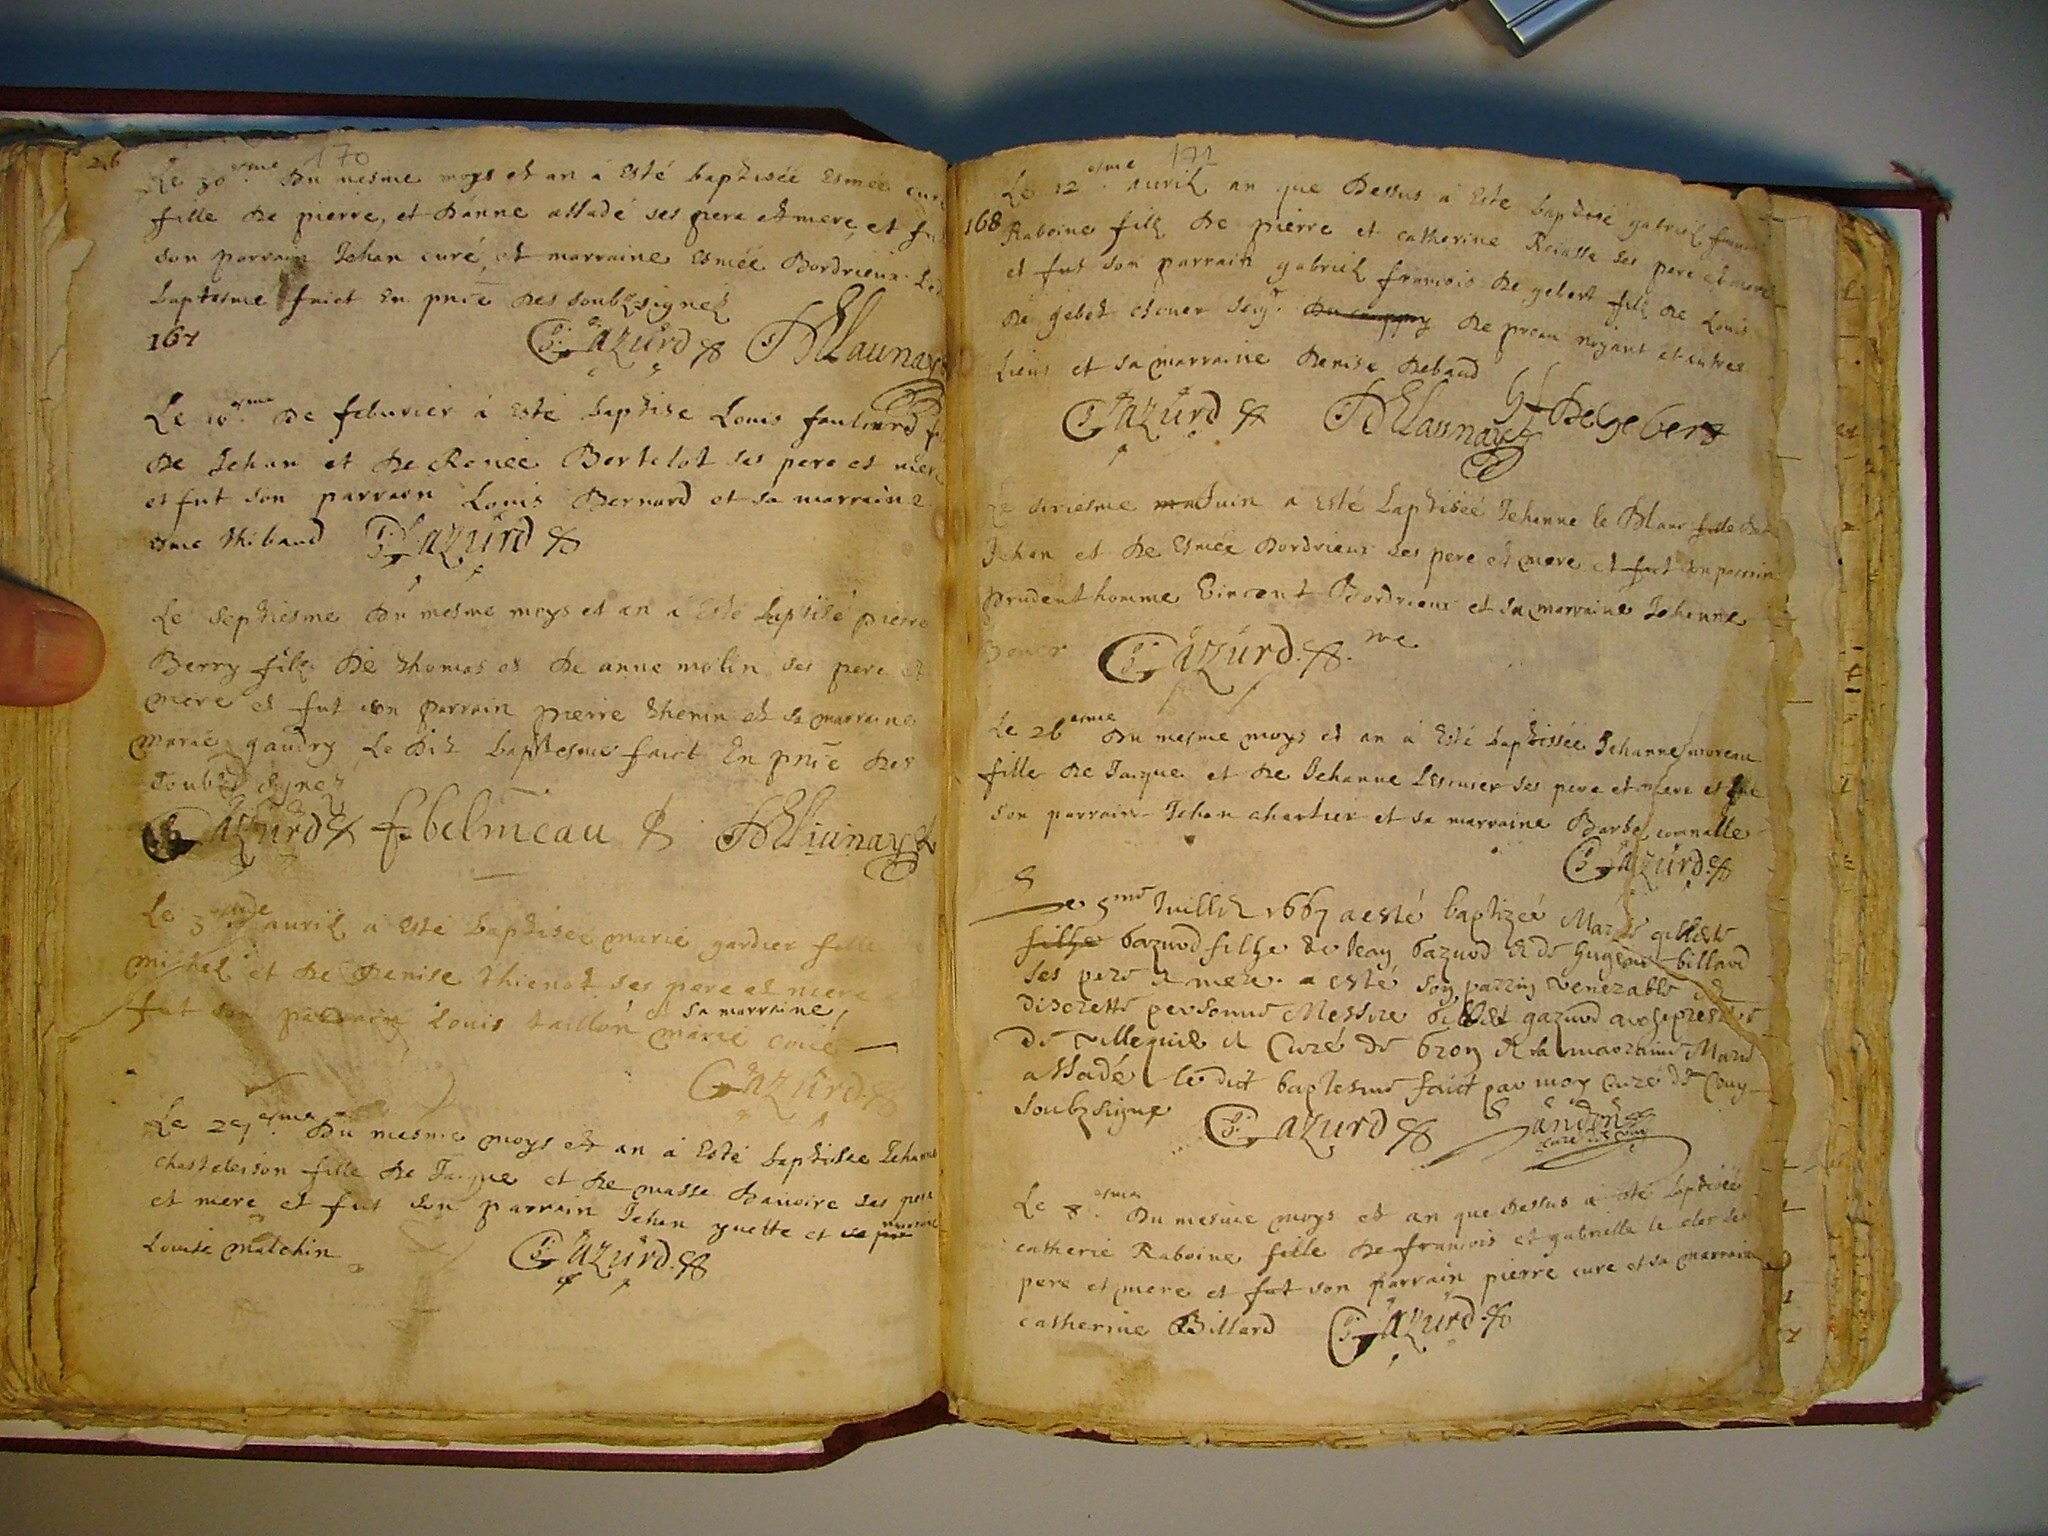 26
170
Le 30esme Du mesme moys et an a Esté baptisée Esmée curé
fille De pierre, et D'anne assadé ses pere et mere, et fut
son parrain Jehan curé, et marraine Esmée Bordrieux. Led
baptesme faict En pnce des soubz signez
167
G. Gazurd Delaunay
Le 10esme de feburier a Esté baptise Louis foulourd
De Jehan et de Renée Bertelot ses pere et mere
et fut son parrain Louis Bernard et sa marraine
thibaud G. Gazurd
Le septiesme Du mesme moys et an a Esté baptisé pierre
Berry filz De thomas et De anne molin ses pere et
mere et fut son parrain pierre thenin et sa marraine
marie gaudry Le Dit baptesme faict En pnce des
soubz signez
Gazurd belmeau Delaunay
Le 3 auril a Esté baptisée marie gardier fille
michel et De Denise thienot ses pere et mere
fut son parrain Louis taillon et sa marraine
marie curé
Gazurd
Le 29esme Du mesme moys et an a Esté baptisée Jehanne
chasteleison fille De Jacque et De masse Dauoire ses pere
et mere et fut son parrain Jehan guette et sa marraine
Louise malchin G. Gazurd
171
Le 12esme auril an que Dessus a Este baptisé gabriel francois
168
Raboine filz De pierre et catherine Reiasse ses pere et mere
et fut son parrain gabriel francois De gebert filz De Louis
De gebert seigr De preau noyant et autres
Lieux et sa marraine Denise Rebaud
G. Gazurd Delaunay Degebert
Le sixiesme Juin a Esté baptisée Jehanne le Blanc fille De
Jehan et De Esmée Bordrieux ses pere et mere et fut son parrain
Prudent homme Vincent Bordrieux et sa marraine Jehanne
G. Gazurd
Le 26esme Du mesme moys et an a Esté baptissée Jehanne moreau
fille De Jacque et De Jehanne Lescuier ses pere et mere et fut
son parrain Jehan chartier et sa marraine Barbe cornnalle
G. Gazurd
Le 5me Juillet 1667 a esté baptizeé Marie gillette
fille Gazurd fille de Jean Gazurd et de Hugene billard
ses pere et mere. a esté son parrin venerable et
discrette personne Messire Gillet gazurd archeprestre
de villequié et Curé de Gron et la marraine Marie
assadé le dict baptesme faict par moy curé de Couy
soubz signe G. Gazurd Sandon
curé de Couy
Le 8esme Du mesme moys et an que dessus a Esté baptisée
catherie Raboine fille De francois et gabrielle le cler ses
pere et mere et fut son parrain pierre cure et sa marraine
catherine Billard G. Gazurd